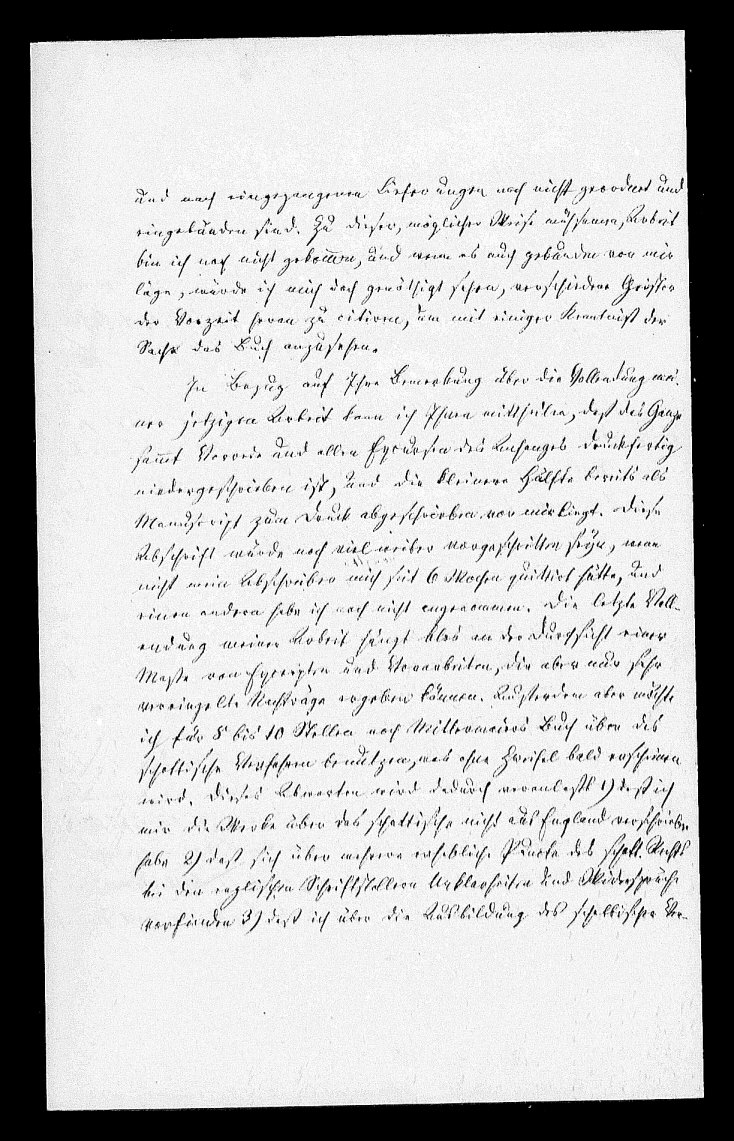 und nach eingegangenen Lieferungen noch nicht geordnet und
eingebunden sind. Zu dieser, möglicher Weise mühsamen, Arbeit
bin ich noch nicht gekom̄en, und wenn es auch gebunden vor mir
läge, würde ich mich doch genöthigt sehen, verschiedene Geister
der Vorzeit heran zu citiren, um mit einiger Kenntniß der
Sache das Buch anzusehen.
In Bezug auf Ihre Bemerkung über die Vollendung mei-
ner jetzigen Arbeit kann ich Ihnen mittheilen, daß das Ganze
sam̄t Vorrede und allen Excursen des Anhanges druckfertig
niedergeschrieben ist, und die kleinere Hälfte bereits als
Manuscript zum Druck abgeschrieben vor mir liegt. Diese
Abschrift würde noch viel weiter vorgeschritten seyn, wenn
nicht mein Abschreiber mich seit 6 Wochen quittirt hätte, und
einen andern habe ich noch nicht angenommen. Die letzte Voll-
endung meiner Arbeit hängt blos an der Durchsicht einer
Masse von Excerpten und Vorarbeiten, die aber nur sehr
vereinzelte Nachträge ergeben können. Ausserdem aber möchte
ich für 8 bis 10 Stellen noch Mittermaiers Buch über das
schottische Verfahren benutzen, was ohne Zweifel bald erscheinen
wird. Dieses Abwarten wird dadurch veranlaßt 1) daß ich
mir die Werke über das schottische nicht aus England verschrieben
habe 2) daß sich über mehrere erhebliche Puncte des schott. Rechts
bei den englischen Schriftstellern Unklarheiten und Widersprüche
vorfinden 3) daß ich über die Ausbildung des schottischen Ver-